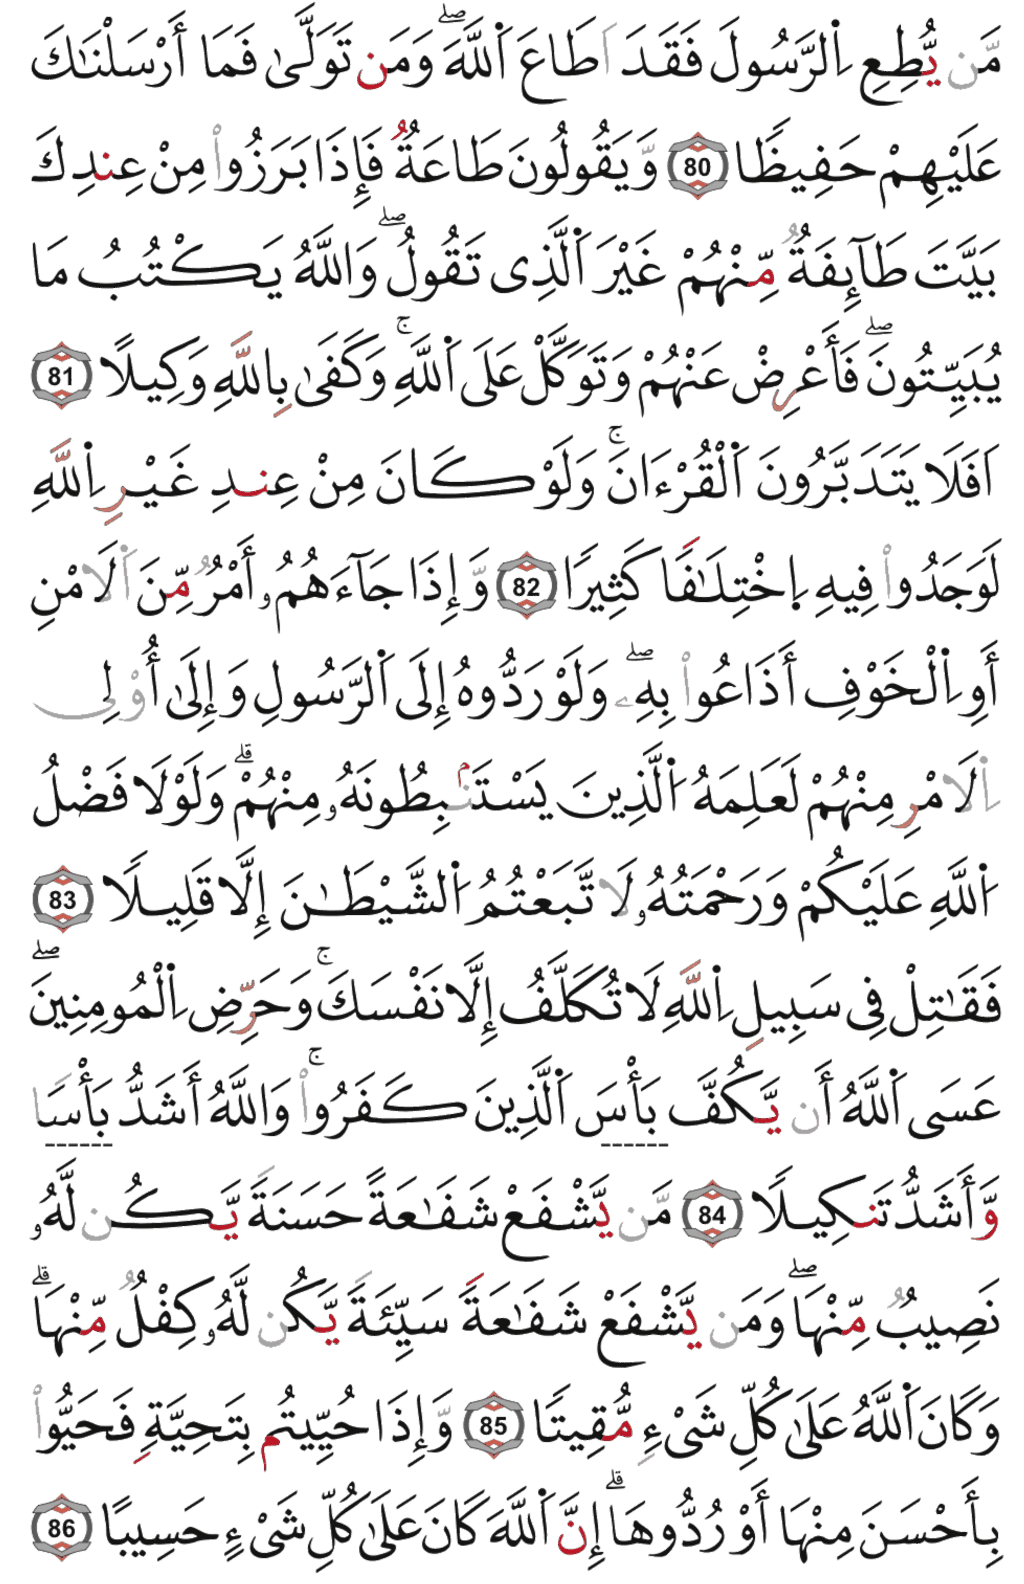 مَّن يُّطِعِ اِ۬لرَّسُولَ فَقَدَ اَطَاعَ اَ۬للَّهَۖ وَمَن تَوَلَّىٰ فَمَا أَرْسَلْنَٰكَ
عَلَيْهِمْ حَفِيظًا 80 وَّيَقُولُونَ طَاعَةٌ فَإِذَا بَرَزُوا۟ مِنْ عِندِكَ
بَيَّتَ طَآئِفَةٌ مِّنْهُمْ غَيْرَ اَ۬لَّذِى تَقُولُۖ وَاللَّهُ يَكْتُبُ مَا
يُبَيِّتُونَۖ فَأَعْرِضْ عَنْهُمْ وَتَوَكَّلْ عَلَى اَ۬للَّهِۚ وَكَفَىٰ بِاللَّهِ وَكِيلًا 81
اَفَلَا يَتَدَبَّرُونَ اَ۬لْقُرْءَانَۚ وَلَوْ كَانَ مِنْ عِندِ غَيْرِ اِ۬للَّهِ
لَوَجَدُوا۟ فِيهِ اِ۪خْتِلَٰفًا كَثِيرًا 82 وَّإِذَا جَآءَهُمُۥ أَمْرٌ مِّنَ اَ۬لَامْنِ
أَوِ اِ۬لْخَوْفِ أَذَاعُوا۟ بِهِۦۖ وَلَوْ رَدُّوهُ إِلَى اَ۬لرَّسُولِ وَإِلَىٰ أُو۟لِى
اِ۬لَامْرِ مِنْهُمْ لَعَلِمَهُ اُ۬لَّذِينَ يَسْتَنۢبِطُونَهُۥ مِنْهُمْۗ وَلَوْلَا فَضْلُ
اُ۬للَّهِ عَلَيْكُمْ وَرَحْمَتُهُۥ لَا تَّبَعْتُمُ اُ۬لشَّيْطَٰنَ إِلَّا قَلِيلًا 83
فَقَٰتِلْ فِى سَبِيلِ اِ۬للَّهِ لَا تُكَلَّفُ إِلَّا نَفْسَكَۚ وَحَرِّضِ اِ۬لْمُومِنِينَۖ
عَسَى اَ۬للَّهُ أَن يَّكُفَّ بَأْسَ اَ۬لَّذِينَ كَفَرُوا۟ۚ وَاللَّهُ أَشَدُّ بَأْسًا
وَّأَشَدُّ تَنكِيلًا 84 مَّن يَّشْفَعْ شَفَٰعَةً حَسَنَةً يَّكُن لَّهُۥ
نَصِيبٌ مِّنْهَاۖ وَمَن يَّشْفَعْ شَفَٰعَةً سَيِّئَةً يَّكُن لَّهُۥ كِفْلٌ مِّنْهَاۗ
وَكَانَ اَ۬للَّهُ عَلَىٰ كُلِّ شَىْءٍ مُّقِيتًا 85 وَّإِذَا حُيِّيتُم بِتَحِيَّةٍ فَحَيُّوا۟
بِأَحْسَنَ مِنْهَا أَوْ رُدُّوهَاۗ إِنَّ اَ۬للَّهَ كَانَ عَلَىٰ كُلِّ شَىْءٍ حَسِيبًا 86